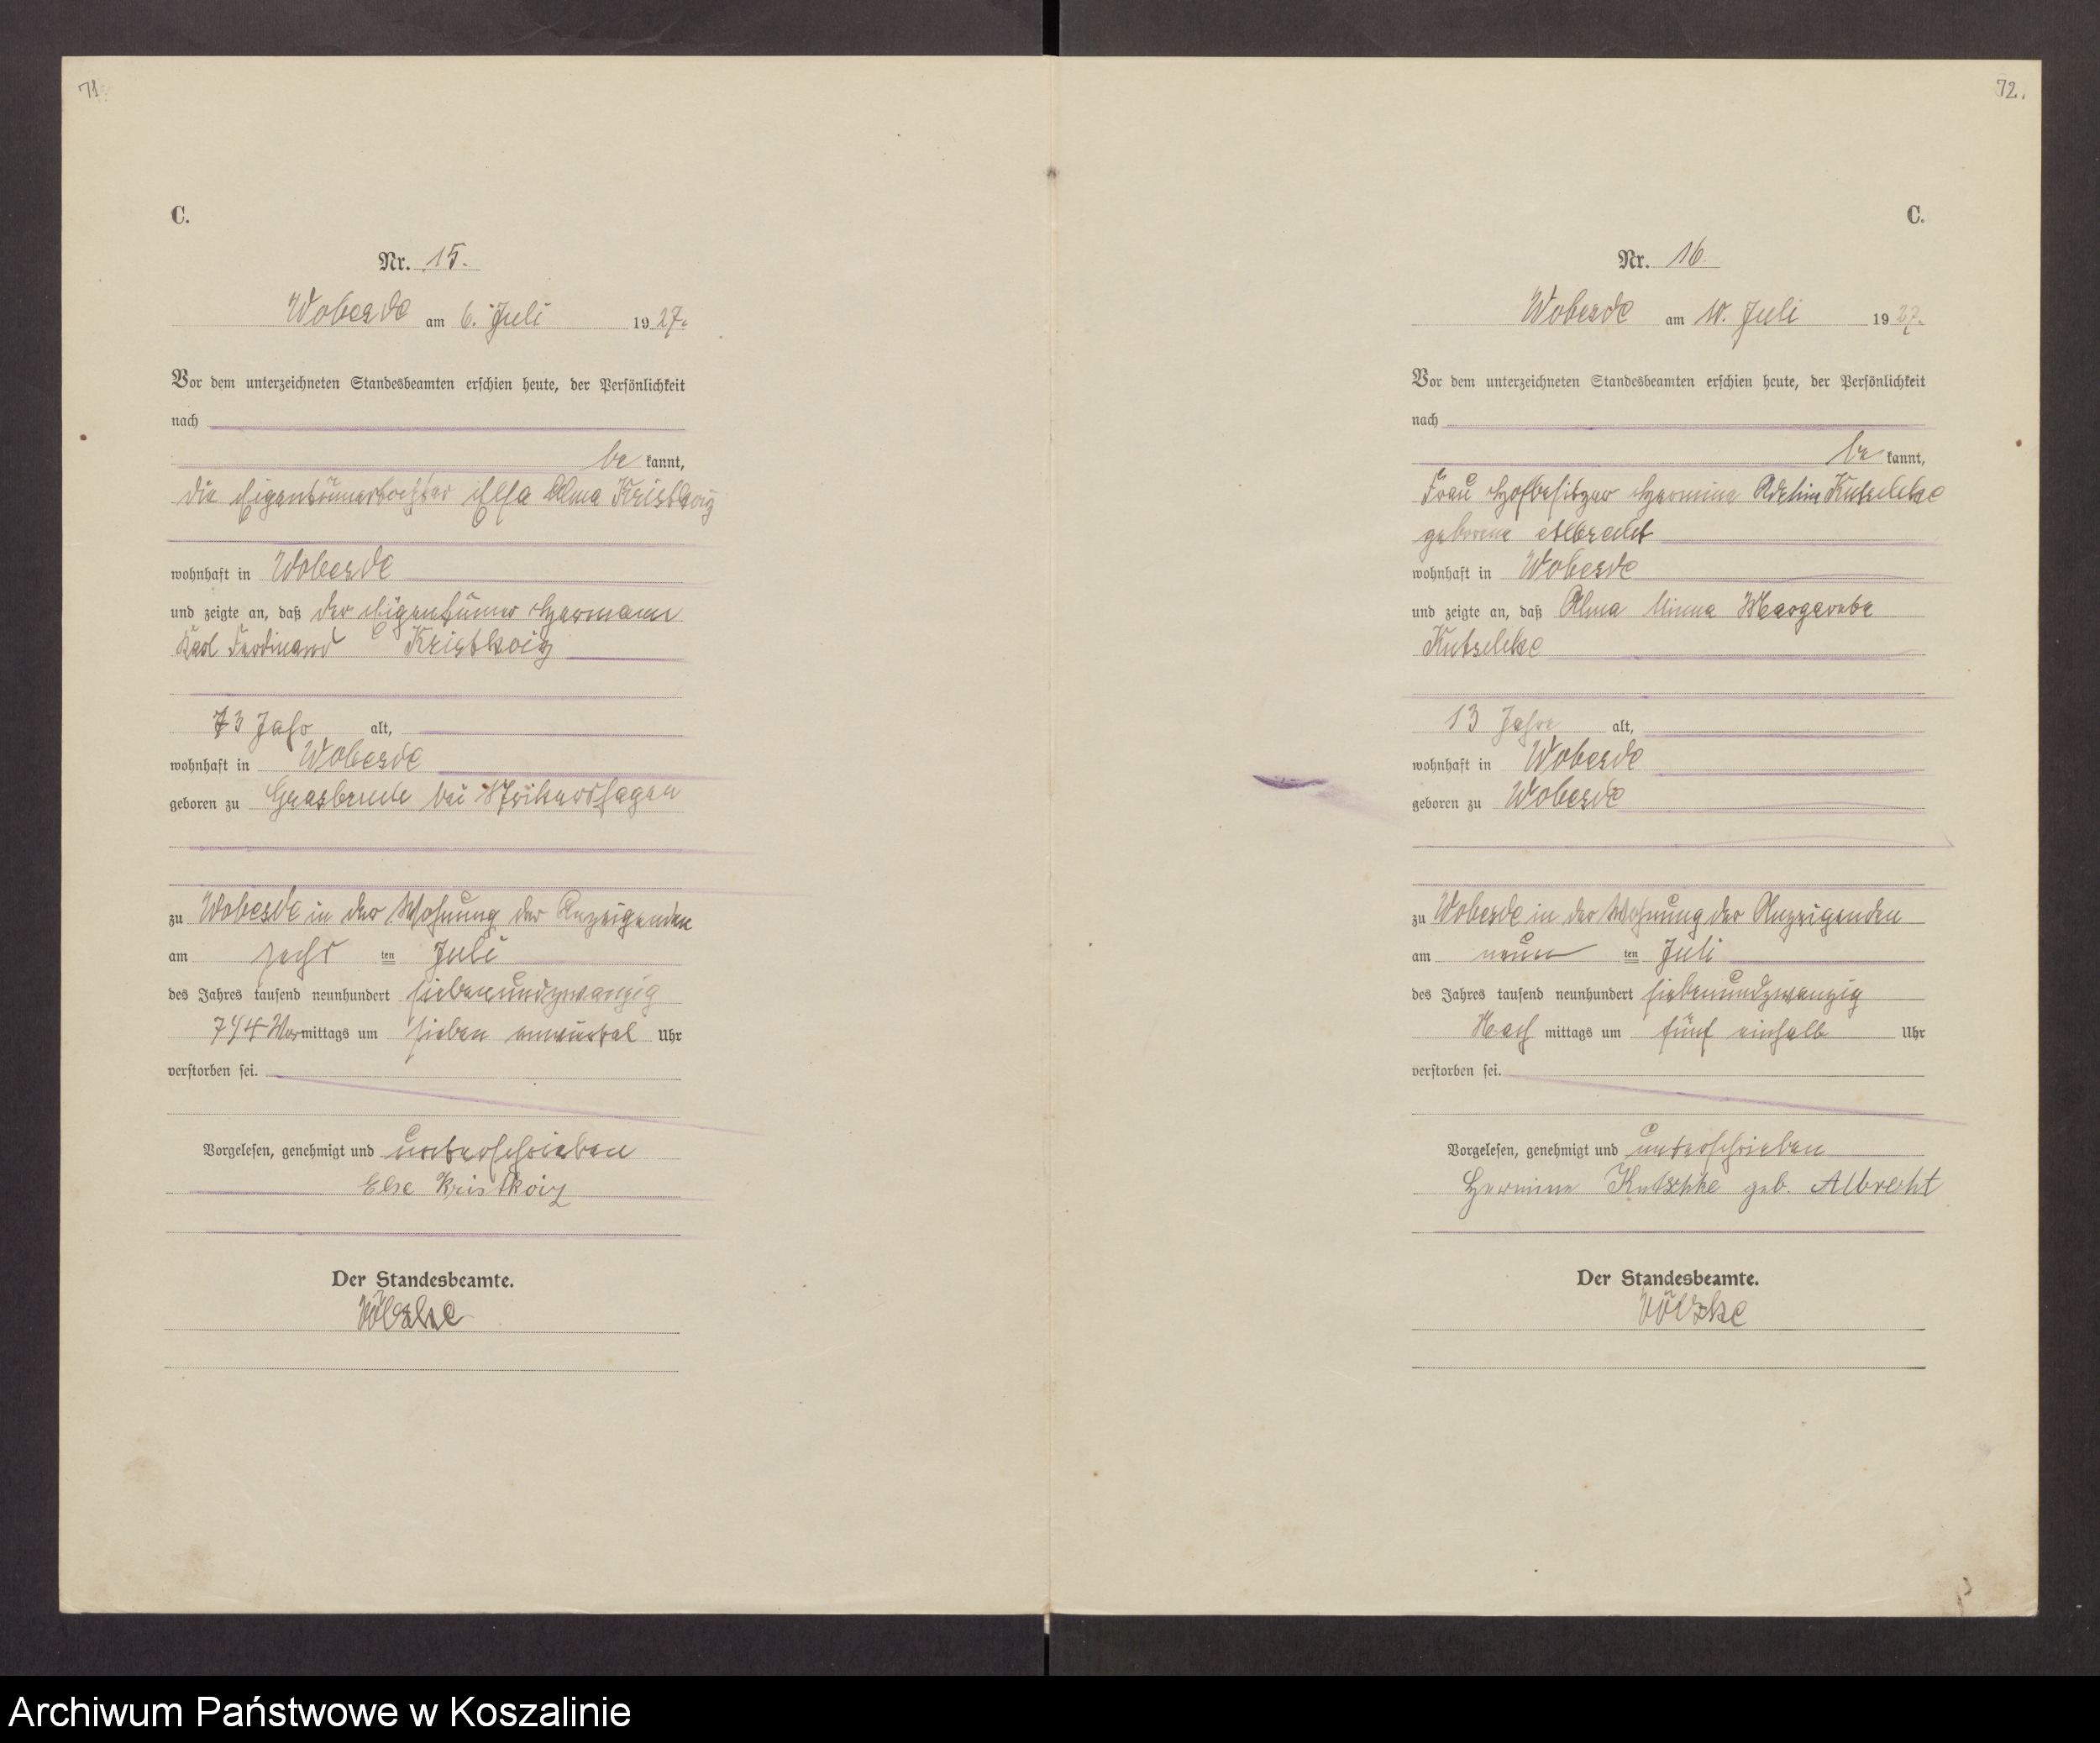 71
C.
Nr. 15.
Wobesde am 6. Juli 1927.
Vor dem unterzeichneten Standesbeamten erschien heute, der Persönlichkeit
nach
be kannt,
die Eigentümertochter Elsa Alma Kristkoiz
wohnhaft in Wobesde
und zeigte an, daß der Eigentümer Hermann
Karl Ferdinand Kristkoiz
73 Jahr alt,
wohnhaft in Wobesde
geboren zu bei
zu Wobesde in der Wohnung der Anzeigenden
am sechs ten Juli
des Jahres tausend neunhundert siebenundzwanzig
7 1/4 Vormittags um sieben einviertel Uhr
verstorben sei.
Vorgelesen, genehmigt und unterschrieben
Else Kristkoiz
Der Standesbeamte.
Völzke
72.
C.
Nr. 16.
Wobesde am 10. Juli 1927.
Vor dem unterzeichneten Standesbeamten erschien heute, der Persönlichkeit
nach
be kannt,
Frau Hofbesitzer Hermine Kutschke
geborene Albrecht
wohnhaft in Wobesde
und zeigte an, daß Alma Minna Margarete
Kutschke
13 Jahre alt,
wohnhaft in Wobesde
geboren zu Wobesde
zu Wobesde in der Wohnung der Anzeigenden
am neun ten Juli
des Jahres tausend neunhundert siebenundzwanzig
Nach mittags um fünf einhalb Uhr
verstorben sei.
Vorgelesen, genehmigt und unterschrieben
Hermine Kutschke geb. Albrecht
Der Standesbeamte.
Völzke
Archiwum Państwowe w Koszalinie